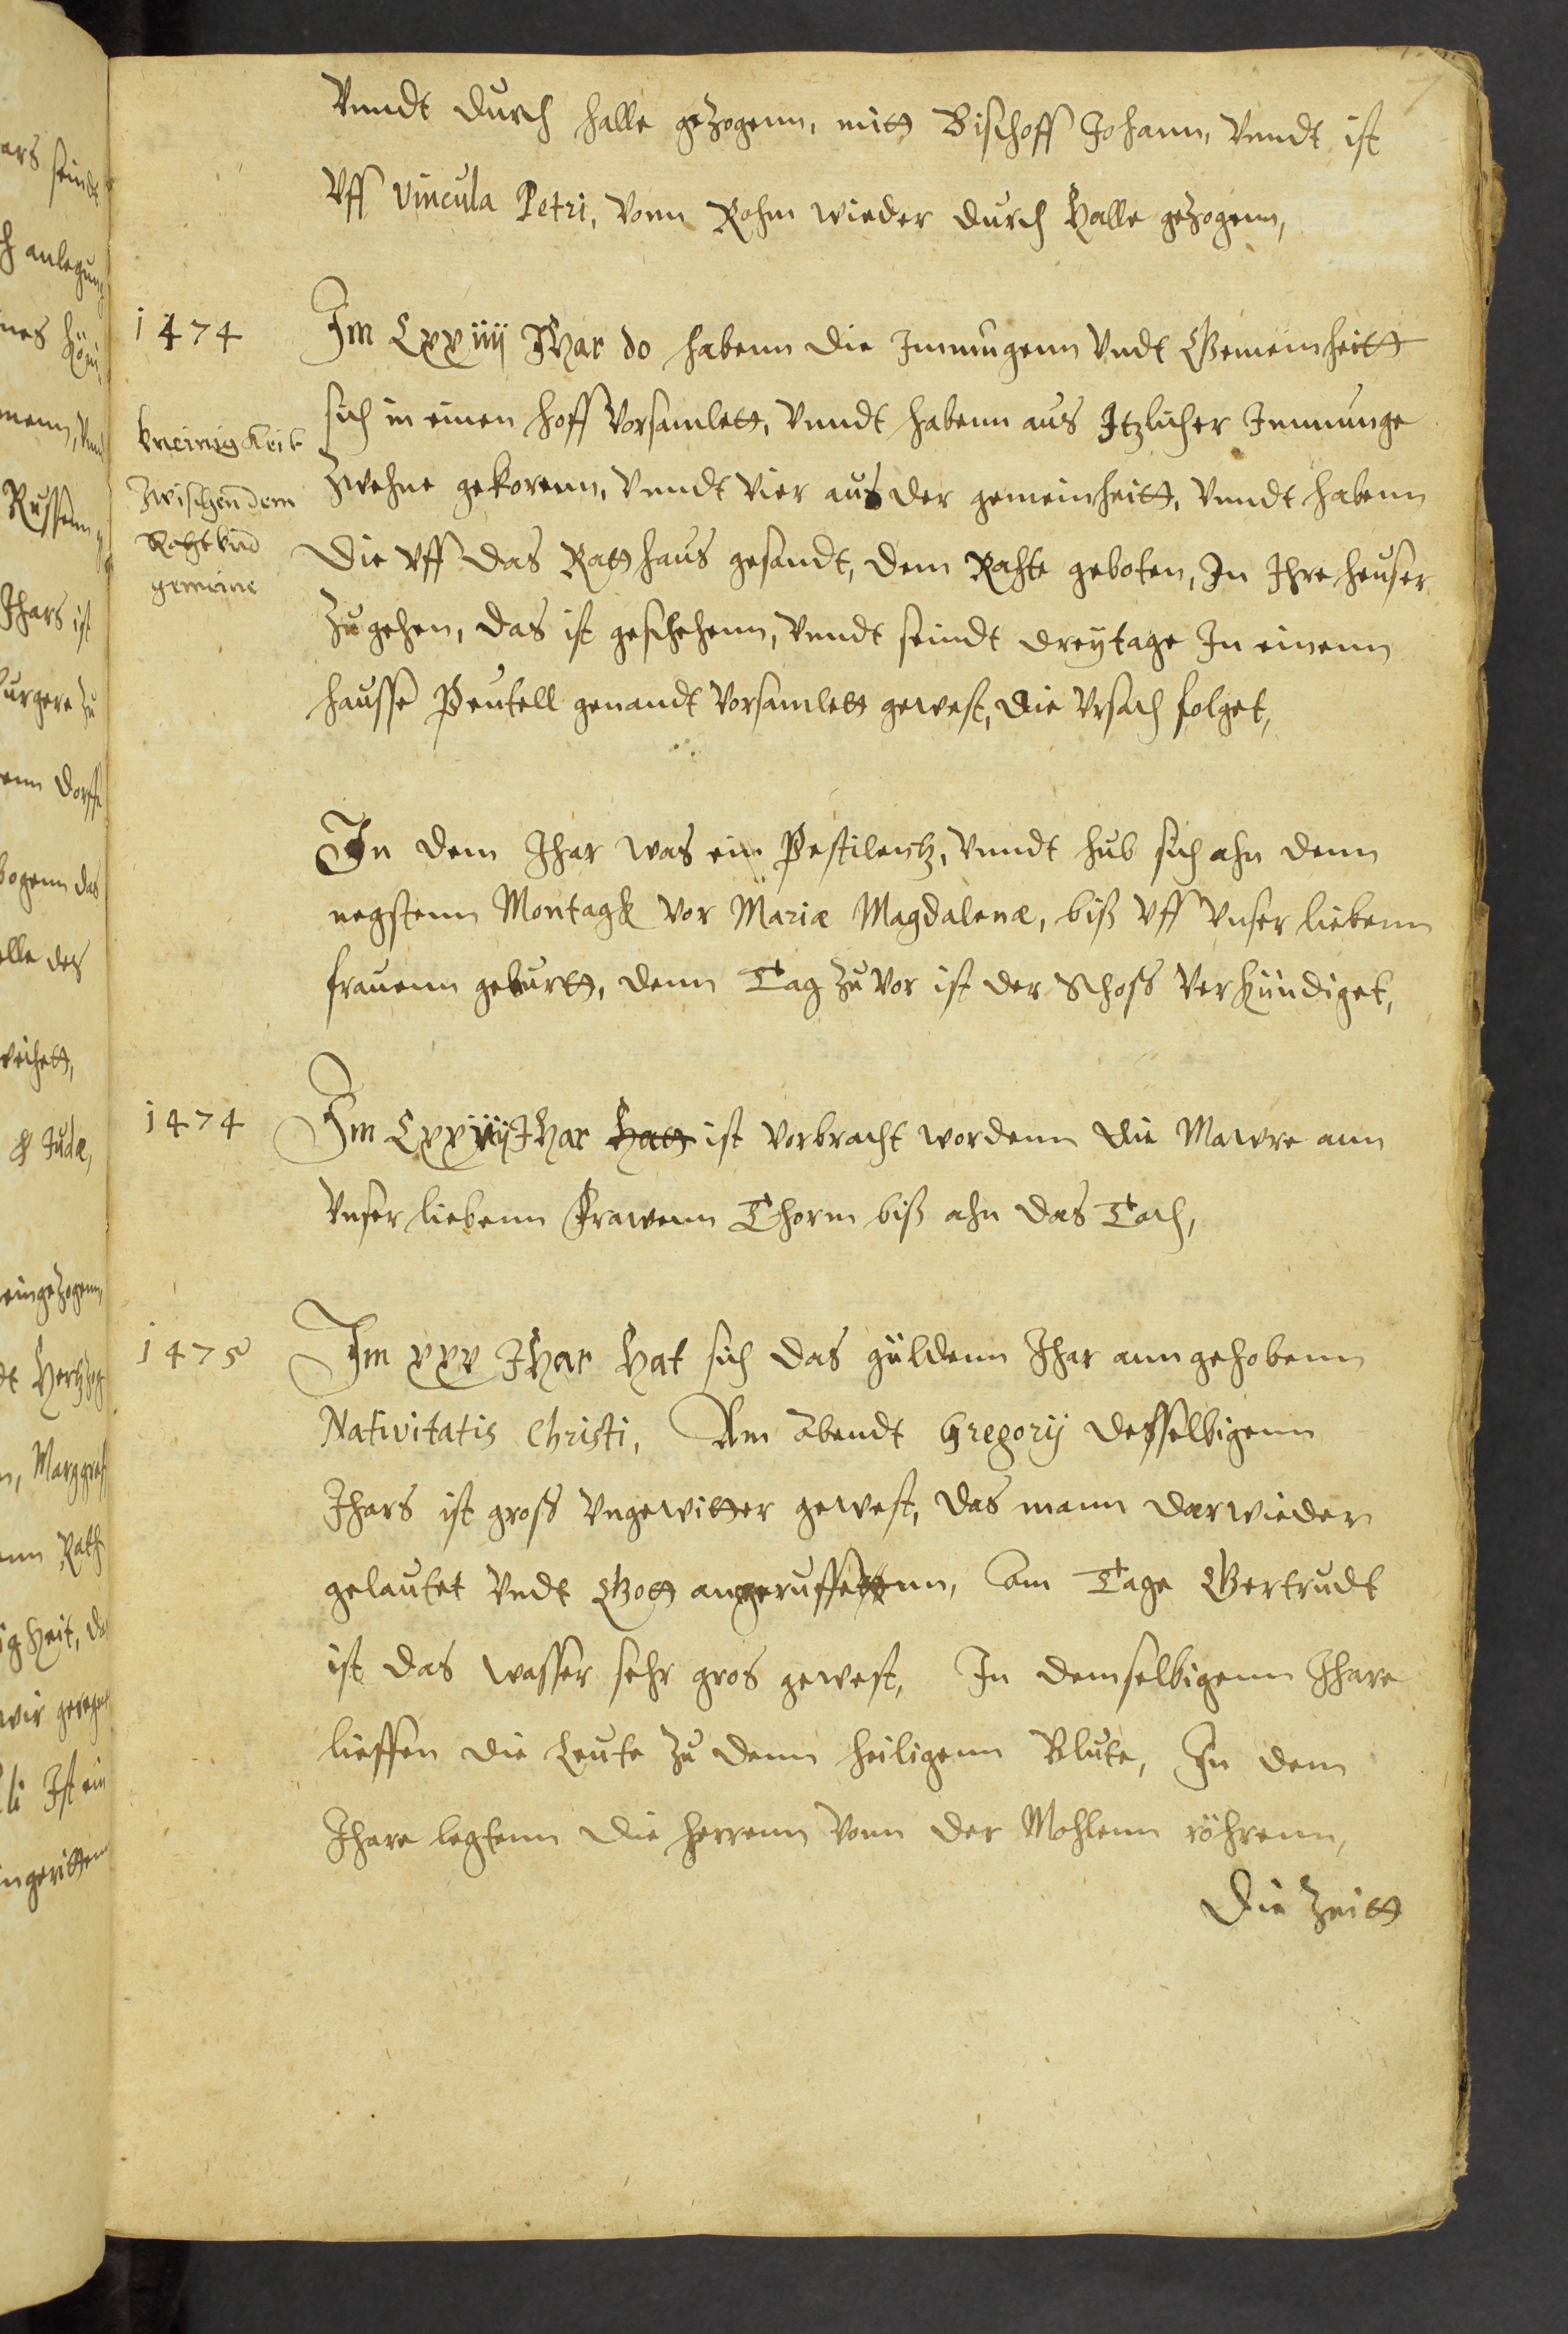 Vnndt durch halle gezogenn, mitt Bischoff Johann, Vnndt ist
Vff Vincula Petri, Vonn Rohm wieder durch Halle gezogenn,
1474
Im Lxxiiij Jhar do habenn die Innungenn Vndt Gemeinheitt
sich in einen hoff Vorsamlett, Vnndt habenn aus Itzlicher Innunge
Zwehne gekorenn, Vnndt Vier aus der gemeinheitt, Vnndt habenn
die Vff das Ratthaus gesandt, dem Rahte geboten, In Ihre heuser
Zugehen, das ist geschehenn, Vnndt seindt dreytage In einenn
hausse Peutell genandt Vorsamlett gewest, die Vrsach folget,
Vneinigkeit
Zwischen dem
Raht vnd
gemeine
In dem Jhar was ein Pestilentz, Vnndt hub sich ahn denn
negstenn Montagk Vor Mariæ Magdalenæ, biß Vff Vnser liebenn
frauenn geburtt, denn Tag zuvor ist der Schoss Verkündiget,
1474
Im Lxxiiij Jhar hatt ist Vorbracht wordenn die Mawre ann
Vnser liebenn Frawenn Thorm biß ahn das Tach,
1475
Im xxv Jhar Hat sich das güldenn Jhar anngehobenn
Nativitatis Christi, Am abendt Gregorij desselbigenn
Jhars ist gross Vngewitter gewest, das mann darwieder
gelautet Vndt Gott angeruffenn, am Tage Gertrudt
ist das wasser sehr gros gewest, In demselbigenn Jhare
lieffen die Leute zu denn heiligenn Blute, In dem
Jhare legtenn die herrenn Vonn der Mohlenn röhrenn,
Die Zeitt